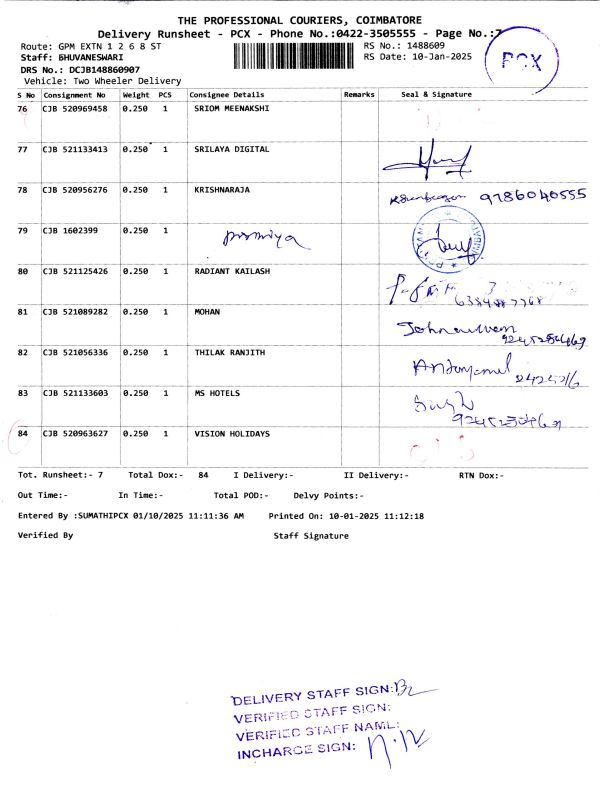 THE PROFESSIONAL COURIERS, COIMBATORE
Delivery Runsheet - PCX - Phone No.:0422-3505555 - Page No.:7
PCX
Route: GPM EXTN 1 2 6 8 ST
RS No.: 1488609
Staff: BHUVANESWARI
RS Date: 10-Jan-2025
DRS No.: DCJB148860907
Vehicle: Two Wheeler Delivery
S No Consignment No Weight PCS Consignee Details Remarks Seal & Signature
76 CJB 520969458 0.250 1 SRIOM MEENAKSHI
77 CJB 521133413 0.250 1 SRILAYA DIGITAL
78 CJB 520956276 0.250 1 KRISHNARAJA 9786040555
79 CJB 1602399 0.250 1
80 CJB 521125426 0.250 1 RADIANT KAILASH
81 CJB 521089282 0.250 1 MOHAN
82 CJB 521056336 0.250 1 THILAK RANJITH
83 CJB 521133603 0.250 1 MS HOTELS
84 CJB 520963627 0.250 1 VISION HOLIDAYS
Tot. Runsheet:- 7 Total Dox:- 84 I Delivery:- II Delivery:- RTN Dox:-
Out Time:- In Time:- Total POD:- Delvy Points:-
Entered By :SUMATHIPCX 01/10/2025 11:11:36 AM Printed On: 10-01-2025 11:12:18
Verified By Staff Signature
DELIVERY STAFF SIGN:
VERIFIED STAFF SIGN:
VERIFIED STAFF NAME:
INCHARGE SIGN: